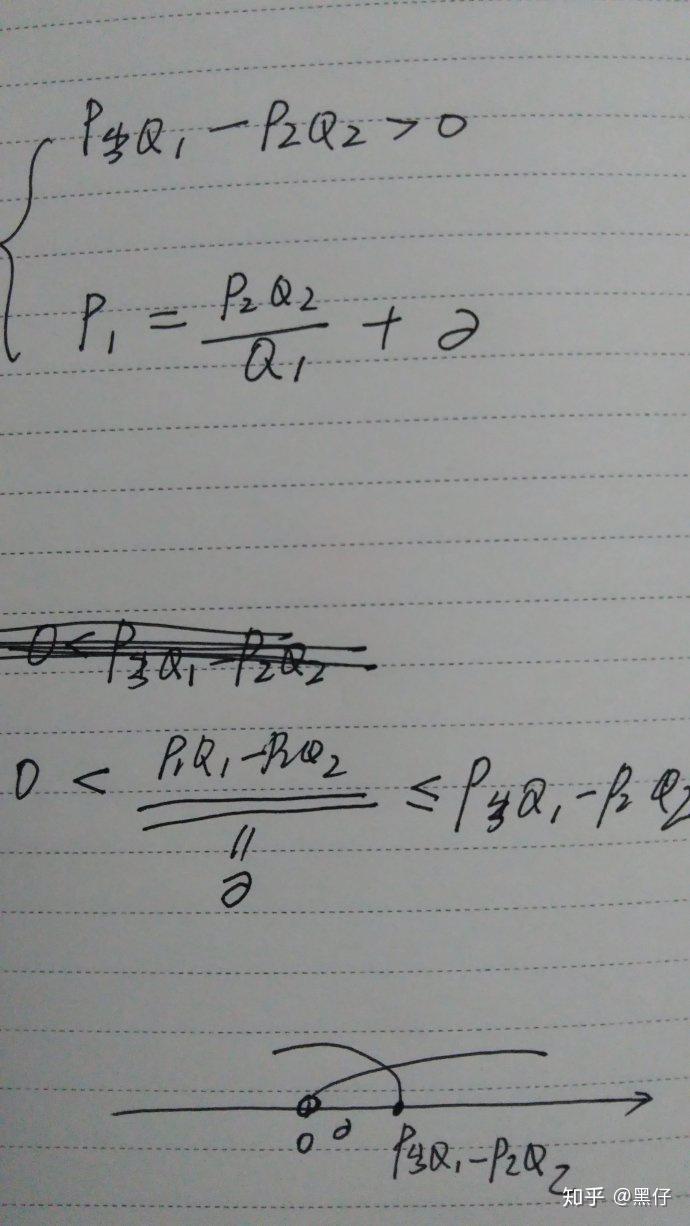 P当Q₁ - P₂Q₂ > 0
P₁ = P₂Q₂/Q₁ + a
0 < P当Q₁ - P₂Q₂
0 < P₁Q₁ - P₂Q₂ ≤ P当Q₁ - P₂Q₂
=
a
0 a P当Q₁ - P₂Q₂
知乎 @黑仔